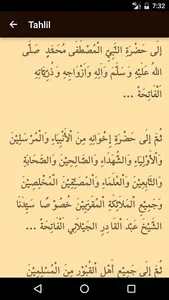 7:32
Tahlil
إِلَى حَضْرَةِ النَّبِيِّ الْمُصْطَفَى مُحَمَّدٍ صَلَّى
اللهُ عَلَيْهِ وَ سَلَّمَ وَآلِهِ وَأَزْوَاجِهِ وَذُرِّيَّاتِهِ
الْفَاتِحَةُ ...
ثُمَّ إِلَى حَضْرَةِ إِخْوَانِهِ مِنَ الْأَنْبِيَاءِ وَالْمُرْسَلِيْنَ
وَالْأَوْلِيَاءِ وَالشُّهَدَاءِ وَالصَّالِحِيْنَ وَالصَّحَابَةِ
وَالتَّابِعِيْنَ وَالْعُلَمَاءِ وَالْمُصَنِّفِيْنَ الْمُخْلِصِيْنَ
وَجَمِيْعِ الْمَلَائِكَةِ الْمُقَرَّبِيْنَ خُصُوْ صًا سَيِّدَنَا
الشَّيْخَ عَبْدَ الْقَادِرِ الْجَيْلَانِي الْفَاتِحَةُ ...
ثُمَّ إِلَى جَمِيْعِ أَهْلِ الْقُبُوْرِ مِنَ الْمُسْلِمِيْنَ